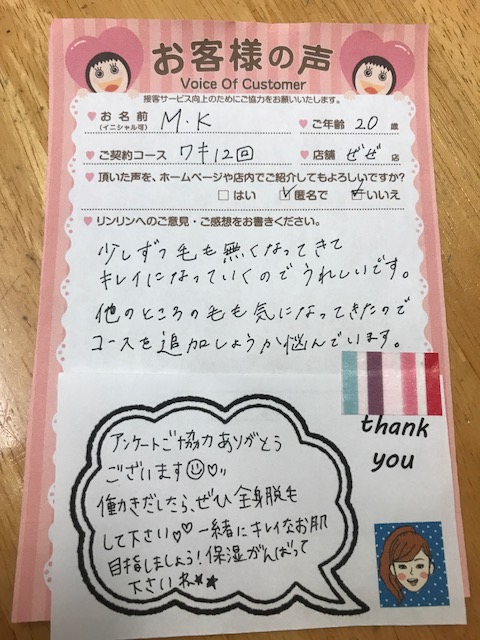 お客様の声
Voice Of Customer
接客サービス向上のためにご協力をお願いいたします。
お名前 (イニシャル可) M.K ご年齢 20 歳
ご契約コース ワキ12回 店舗 ぜぜ 店
頂いた声を、ホームページや店内でご紹介してもよろしいですか?
はい 匿名で いいえ
リンリンへのご意見・ご感想をお書きください。
少しずつ毛も無くなってきて
キレイになっていくのでうれしいです。
他のところの毛も気になってきたので
コースを追加しようか悩んでいます。
thank
you
アンケートご協力ありがとう
ございます
働きだしたら、ぜひ全身脱毛
して下さい♡♡ 一緒にキレイなお肌
目指しましょう!保湿がんばって
下さいね★★